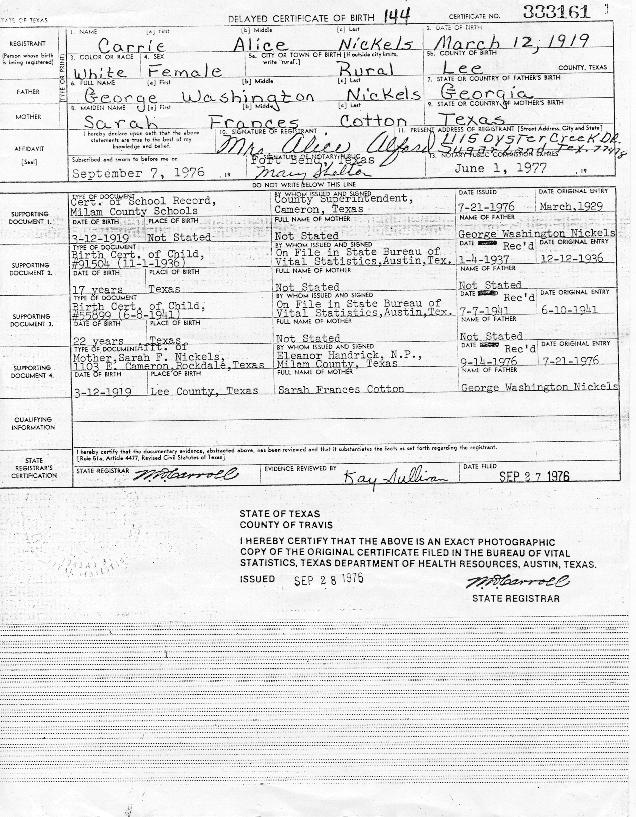 STATE OF TEXAS DELAYED CERTIFICATE OF BIRTH 144 CERTIFICATE NO. 333161
REGISTRANT
(Person whose birth is being registered)
1. NAME (a) First (b) Middle (c) Last 2. DATE OF BIRTH
Carrie Alice Nickels March 12, 1919
3. COLOR OR RACE 4. SEX 5a. CITY OR TOWN OF BIRTH (If outside city limits, write "rural". 5b. COUNTY OF BIRTH
White Female Rural Lee COUNTY, TEXAS
FATHER
6. FULL NAME (a) First (b) Middle (c) Last 7. STATE OR COUNTRY OF FATHER'S BIRTH
George Washington Nickels Georgia
MOTHER
8. MAIDEN NAME (a) First (b) Middle (c) Last 9. STATE OR COUNTRY OF MOTHER'S BIRTH
Sarah Frances Cotton Texas
AFFIDAVIT
I hereby declare upon oath that the above statements are true to the best of my knowledge and belief.
10. SIGNATURE OF REGISTRANT 11. PRESENT ADDRESS OF REGISTRANT (Street Address, City and State)
Mrs. Alice Alford 1115 Oyster Creek DR.
Tex. 77478
(Seal) Subscribed and sworn to before me on SIGNATURE OF NOTARY PUBLIC 13. NOTARY PUBLIC COMMISSION EXPIRES
Fort Bend, Texas
September 7, 1976 , 19 Mary Shelton June 1, 1977 , 19
DO NOT WRITE BELOW THIS LINE
SUPPORTING DOCUMENT 1.
TYPE OF DOCUMENT BY WHOM ISSUED AND SIGNED DATE ISSUED DATE ORIGINAL ENTRY
Cert. of School Record, County Superintendent,
Milam County Schools Cameron, Texas 7-21-1976 March, 1929
DATE OF BIRTH PLACE OF BIRTH FULL NAME OF MOTHER NAME OF FATHER
3-12-1919 Not Stated Not Stated George Washington Nickels
SUPPORTING DOCUMENT 2.
TYPE OF DOCUMENT BY WHOM ISSUED AND SIGNED DATE Rec'd DATE ORIGINAL ENTRY
Birth Cert. of Child, On File in State Bureau of
#91504 (11-1-1936) Vital Statistics, Austin, Tex. 1-4-1937 12-12-1936
DATE OF BIRTH PLACE OF BIRTH FULL NAME OF MOTHER NAME OF FATHER
17 years Texas Not Stated Not Stated
SUPPORTING DOCUMENT 3.
TYPE OF DOCUMENT BY WHOM ISSUED AND SIGNED DATE Rec'd DATE ORIGINAL ENTRY
Birth Cert. of Child, On File in State Bureau of
#55099 (6-8-1941) Vital Statistics, Austin, Tex. 7-7-1941 6-10-1941
DATE OF BIRTH PLACE OF BIRTH FULL NAME OF MOTHER NAME OF FATHER
22 years Texas Not Stated Not Stated
SUPPORTING DOCUMENT 4.
TYPE OF DOCUMENT BY WHOM ISSUED AND SIGNED DATE Rec'd DATE ORIGINAL ENTRY
Mother, Sarah F. Nickels, Eleanor Handrick, N.P.,
1103 E. Cameron, Rockdale, Texas Milam County, Texas 9-14-1976 7-21-1976
DATE OF BIRTH PLACE OF BIRTH FULL NAME OF MOTHER NAME OF FATHER
3-12-1919 Lee County, Texas Sarah Frances Cotton George Washington Nickels
QUALIFYING INFORMATION
STATE REGISTRAR'S CERTIFICATION
I hereby certify that the documentary evidence, abstracted above, has been reviewed and that it substantiates the facts as set forth regarding the registrant.
[Rule 51a, Article 4477, Revised Civil Statutes of Texas]
STATE REGISTRAR EVIDENCE REVIEWED BY DATE FILED
W D Carroll Kay Sullivan SEP 27 1976
STATE OF TEXAS
COUNTY OF TRAVIS
I HEREBY CERTIFY THAT THE ABOVE IS AN EXACT PHOTOGRAPHIC
COPY OF THE ORIGINAL CERTIFICATE FILED IN THE BUREAU OF VITAL
STATISTICS, TEXAS DEPARTMENT OF HEALTH RESOURCES, AUSTIN, TEXAS.
ISSUED SEP 28 1976 W D Carroll
STATE REGISTRAR